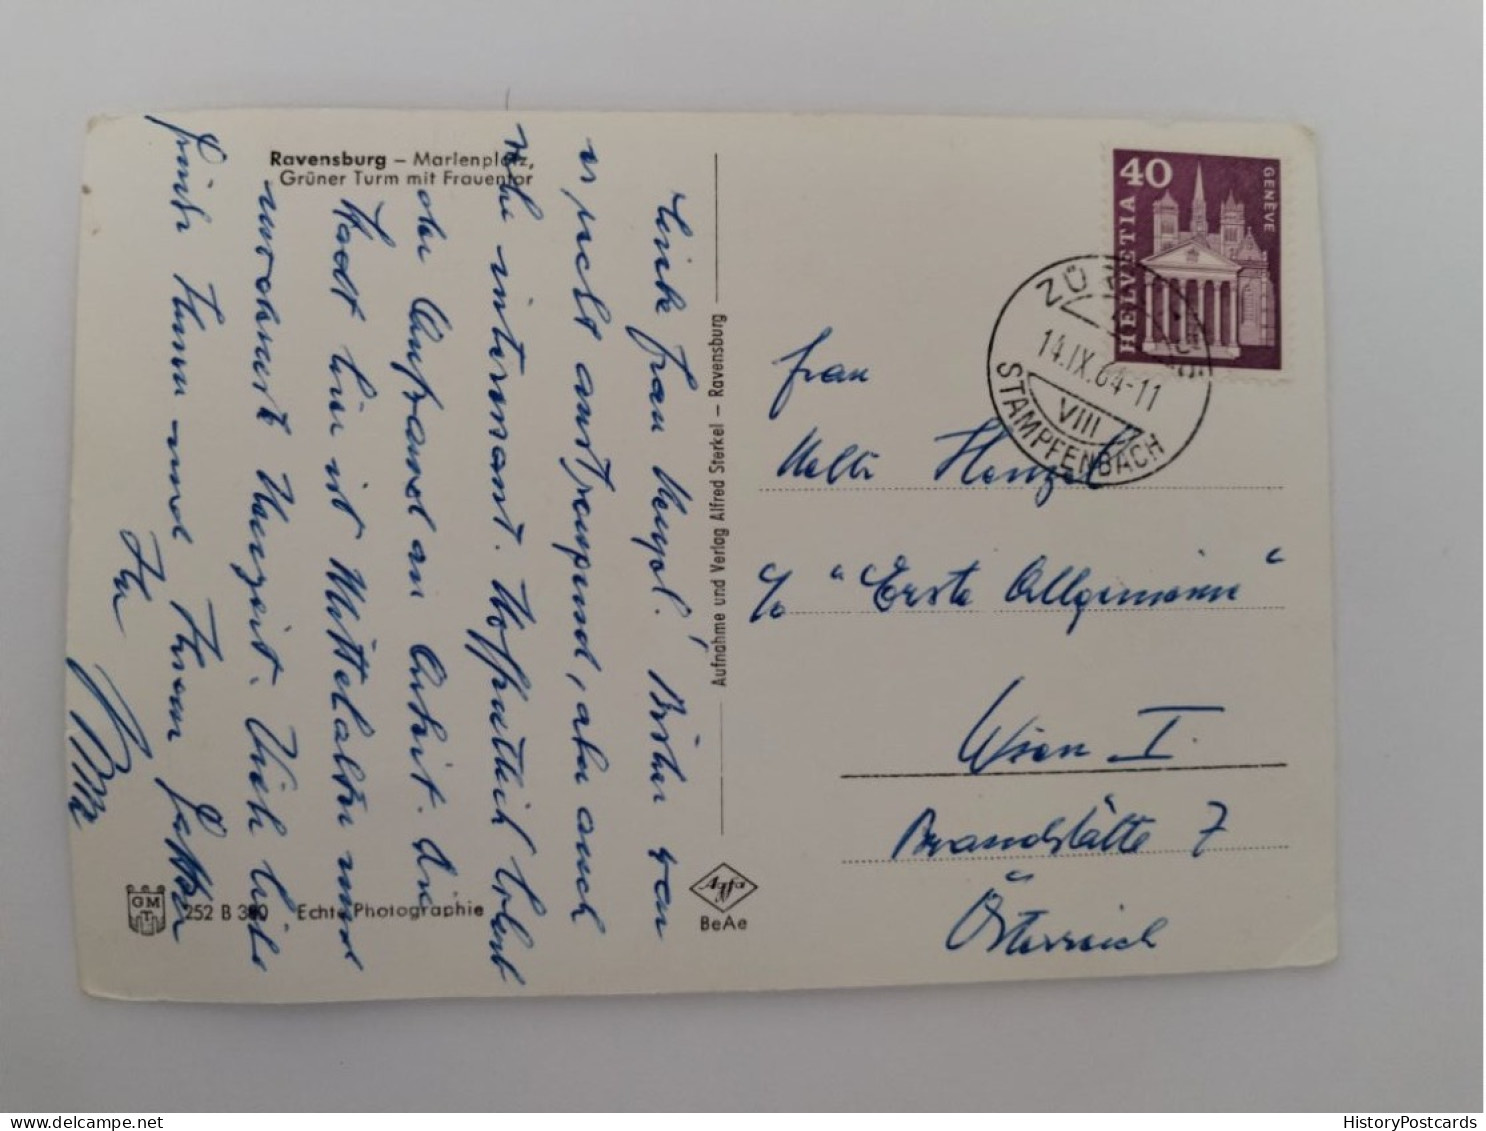 Ravensburg – Marienplatz,
Grüner Turm mit Frauentor
Liebe Frau Henzel! Bisher war
es recht anstrengend, aber auch
sehr interessant. Hoffentlich erlebt
der Aufwand an Arbeit. Die
Stadt hier ist Mittelalter und
Herzeit. Viele liebe
Grüße Ihnen und Ihrem Gatten
Ihr
252 B 380 Echte Photographie
GMT
Aufnahme und Verlag Alfred Sterkel – Ravensburg
Agfa
BeAe
40
GENÈVE
HELVETIA
ZÜ
14.IX.64-11
VIII
STAMPFENBACH
Frau
Nelli Henzel
c/o "Erste Allgemeine"
Wien I.
Brandstätte 7
Österreich
HistoryPostcards.com